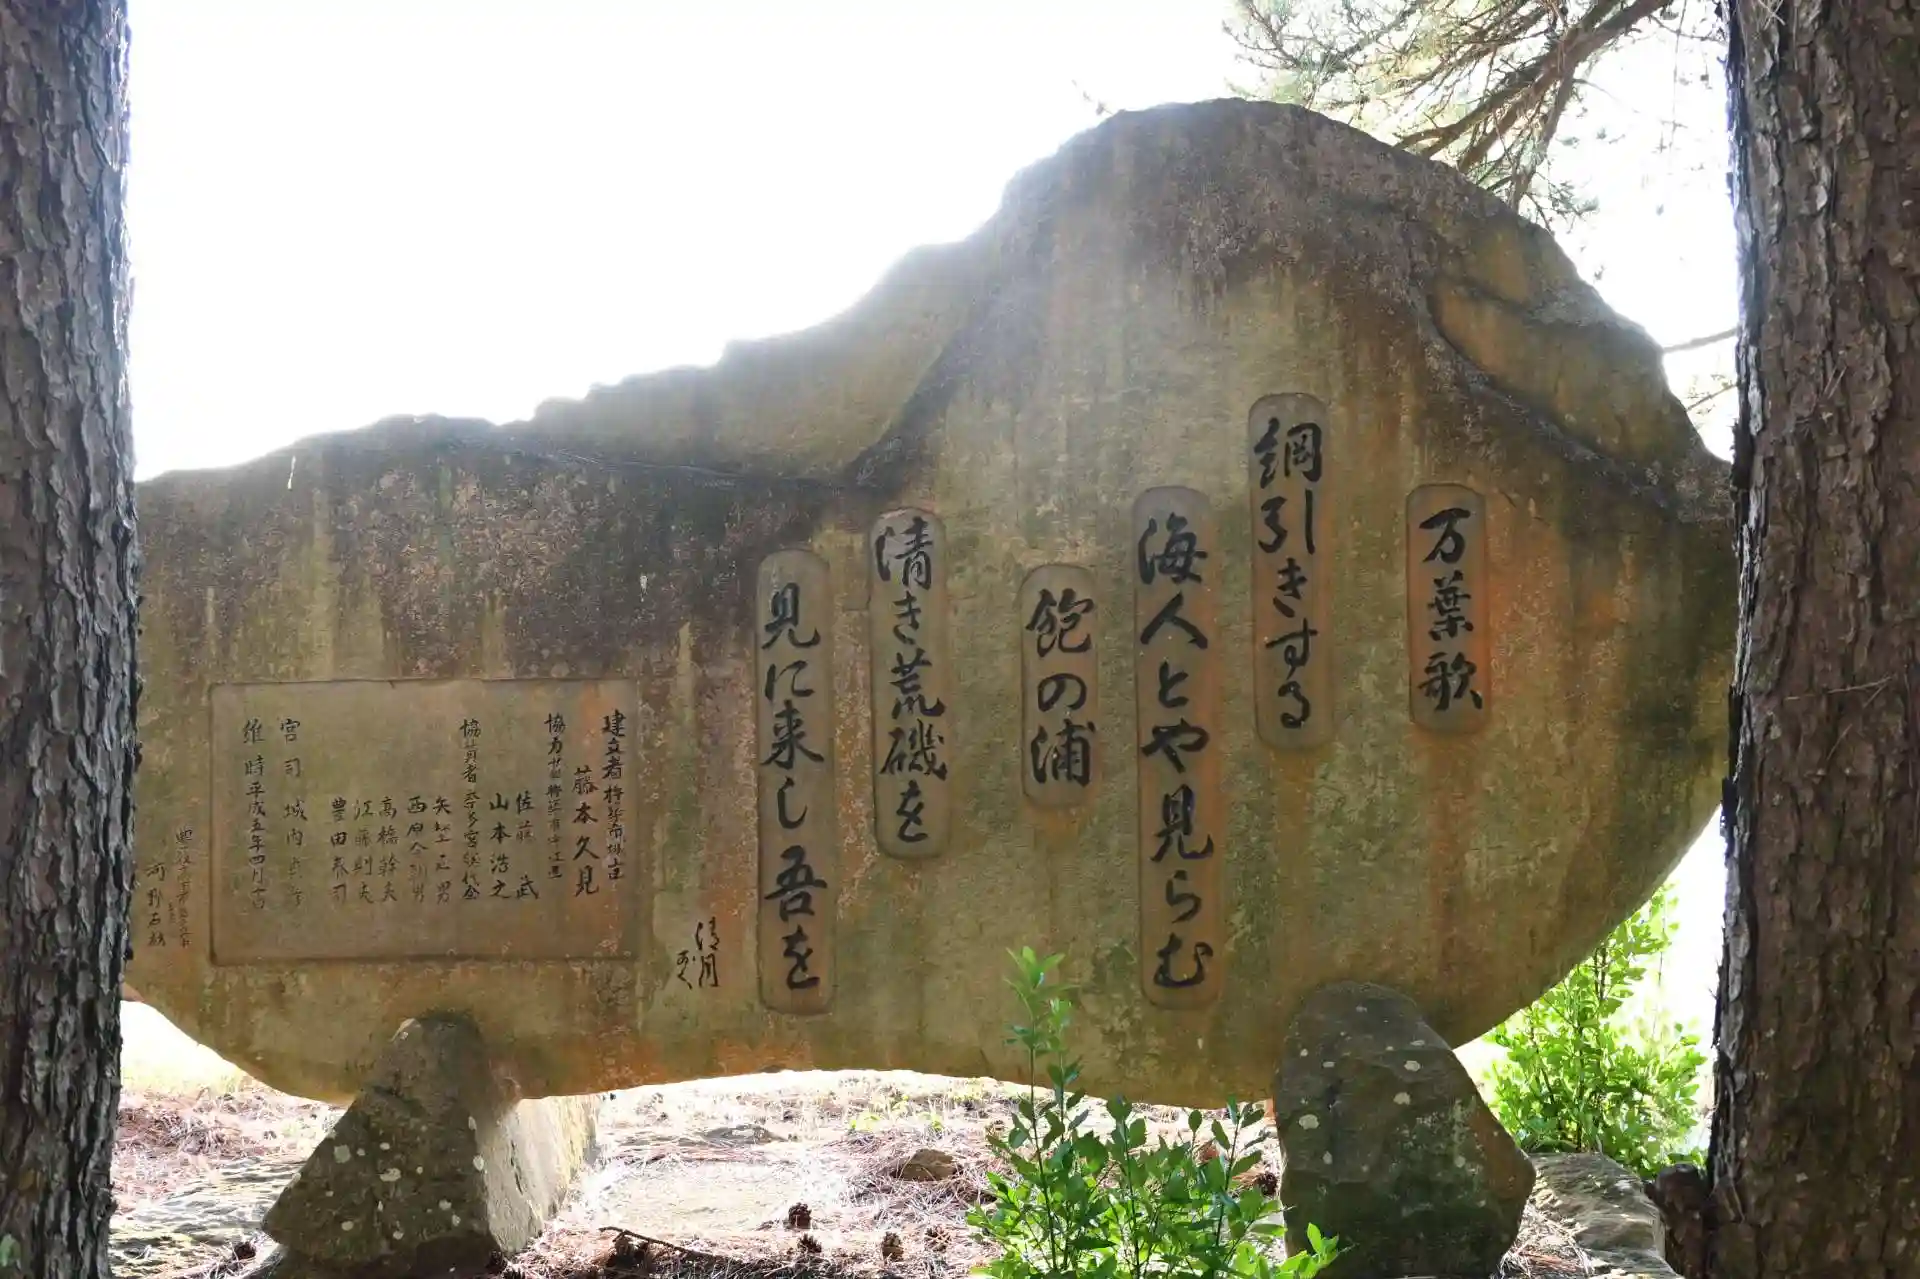 万葉歌
網引きする
海人とや見らむ
飽の浦
清き荒磯を
見に来し吾を
清月
建立者
藤本久見
佐藤 武
山本浩之
矢野正男
高橋幹夫
江藤則夫
豊田泰司
宮司 城内
維時平成五年四月吉日
河野石材